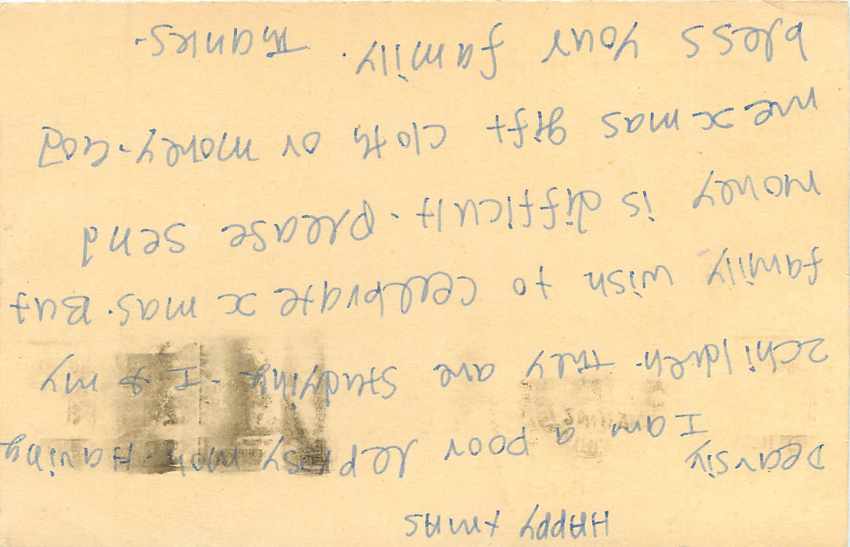 HAPPY XMAS
Dear sir
I am a poor leprosy man. Having
2 children they are studying. I & my
family wish to cellbrate x mas. But
money is difficult. please send
me x mas gift cloth or money. God
bless your family. Thanks.